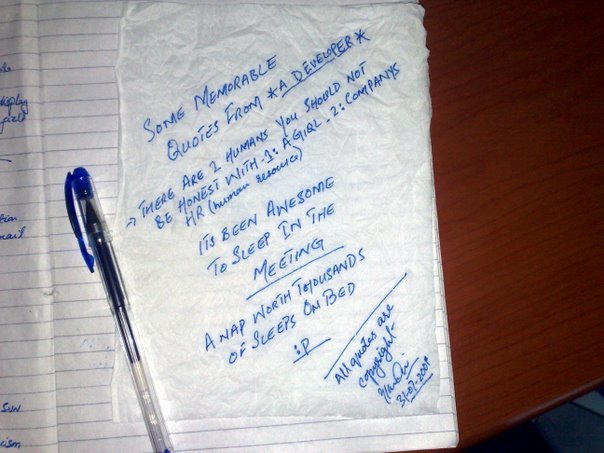 SOME MEMORABLE
QUOTES FROM *A DEVELOPER*
→ THERE ARE 2 HUMANS YOU SHOULD NOT
BE HONEST WITH - 1: A GIRL - 2: COMPANYS
HR (human resource)
ITS BEEN AWESOME
TO SLEEP IN THE
MEETING
A NAP WORTH THOUSANDS
OF SLEEPS ON BED
:P
All quotes are
copyright-
SUN